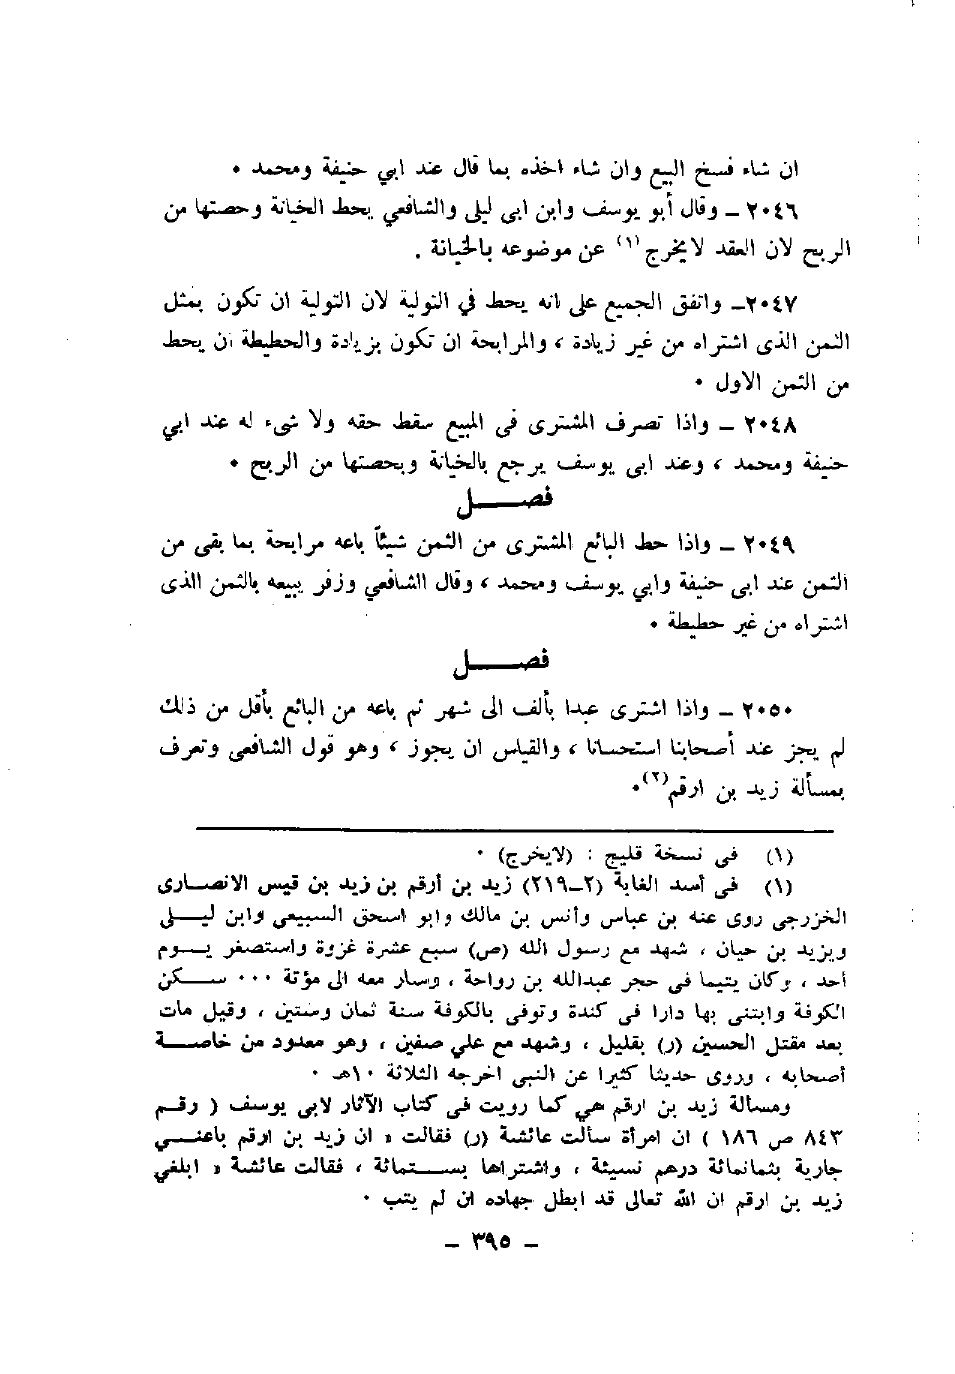 ان شاء فسخ البيع وان شاء اخذه بما قال عند ابي حنيفة ومحمد ٠
٢٠٤٦ ــ وقال أبو يوسف وابن ابى ليلى والشافعي يحط الخيانة وحصتها من
الربح لان العقد لايخرج(١) عن موضوعه بالخيانة .
٢٠٤٧ــ واتفق الجميع على انه يحط في التولية لان التولية ان تكون بمثل
الثمن الذى اشتراه من غير زيادة ، والمرابحة ان تكون بزيادة والحطيطة ان يحط
من الثمن الاول ٠
٢٠٤٨ ــ واذا تصرف المشترى فى المبيع سقط حقه ولا شىء له عند ابي
حنيفة ومحمد ، وعند ابى يوسف يرجع بالخيانة وبحصتها من الربح ٠
فصـــــل
٢٠٤٩ ــ واذا حط البائع المشترى من الثمن شيئاً باعه مرابحة بما بقى من
الثمن عند ابى حنيفة وابي يوسف ومحمد ، وقال الشافعي وزفر يبيعه بالثمن الذى
اشتراه من غير حطيطة ٠
فصـــــل
٢٠٥٠ ــ واذا اشترى عبدا بألف الى شهر ثم باعه من البائع بأقل من ذلك
لم يجز عند أصحابنا استحسانا ، والقياس ان يجوز ، وهو قول الشافعى وتعرف
بمسألة زيد بن ارقم(٢)٠
(١) فى نسخة قليج : (لايخرج) ٠
(١) فى أسد الغابة (٢ــ٢١٩) زيد بن أرقم بن زيد بن قيس الانصارى
الخزرجى روى عنه بن عباس وأنس بن مالك وابو اسحق السبيعى وابن ليـــلى
ويزيد بن حيان ، شهد مع رسول الله (ص) سبع عشرة غزوة واستصغر يـــوم
أحد ، وكان يتيما فى حجر عبدالله بن رواحة ، وسار معه الى مؤتة ٠٠٠ ســـكن
الكوفة وابتنى بها دارا فى كندة وتوفى بالكوفة سنة ثمان وستين ، وقيل مات
بعد مقتل الحسين (ر) بقليل ، وشهد مع علي صفين ، وهو معدود من خاصـــة
أصحابه ، وروى حديثا كثيرا عن النبي اخرجه الثلاثة ١٠هـ ٠
ومسألة زيد بن ارقم هي كما رويت فى كتاب الآثار لابى يوسف ( رقـــم
٨٤٣ ص ١٨٦ ) ان امرأة سألت عائشة (ر) فقالت « ان زيد بن ارقم باعنـــي
جارية بثمانمائة درهم نسيئة ، واشتراها بســـتمائة ، فقالت عائشة « ابلغي
زيد بن ارقم ان الله تعالى قد ابطل جهاده ان لم يتب ٠
ــ ٣٩٥ ــ